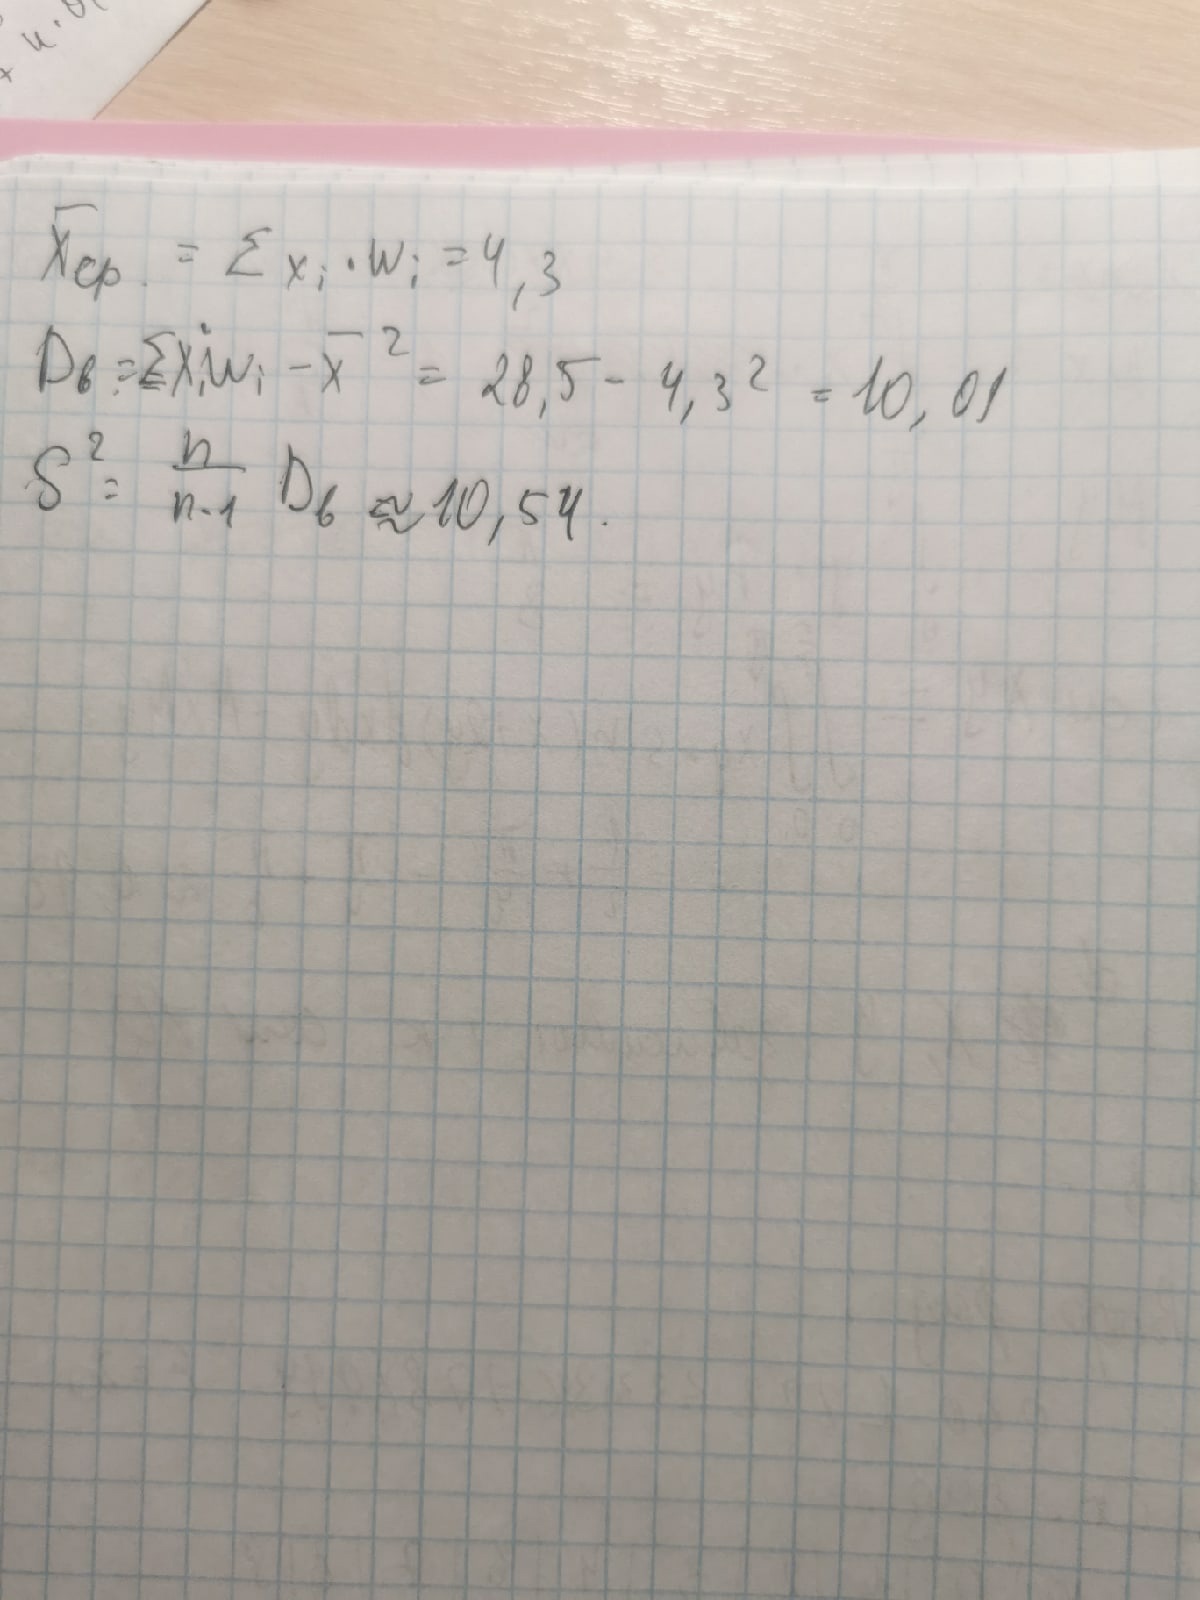 x̄ср. = Σ xᵢ · wᵢ = 4,3
Dв = Σxᵢ²wᵢ – x̄² = 28,5 - 4,3² = 10,01
S² = n/n-1 Dв ≈ 10,54.